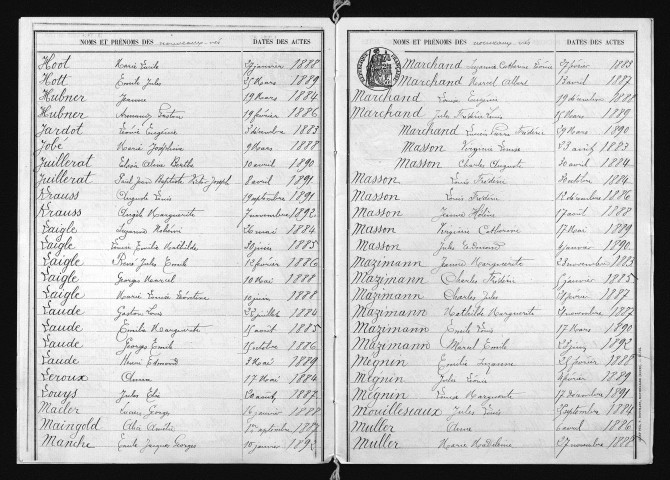 NOMS ET PRÉNOMS DES nouveaux-nés DATES DES ACTES
Hoot Marie Emile 27 janvier 1888
Hott Emile Jules 25 Mars 1889
Hubner Jeanne 19 Mars 1884
Hubner Armand Gaston 19 février 1886
Jardot Eugénie 3 décembre 1883
Jobé Marie Joséphine 9 Mars 1888
Juillerat Aline Berthe 10 avril 1890
Juillerat Paul Jean Baptiste Joseph 8 avril 1891
Krauss Auguste Louis 19 septembre 1891
Krauss Marguerite 7 novembre 1892
Laigle Suzanne 26 mai 1884
Laigle Louise Emilie Mathilde 30 juin 1885
Laigle René Jules Emile 13 février 1886
Laigle Georges Marcel 10 Mai 1888
Laigle Marie Louise Léontine 10 juin 1888
Laude Gaston Louis juillet 1884
Laude Emilie Marguerite 15 août 1885
Laude Georges Emile 15 octobre 1886
Laude Henri Edmond 3 Mai 1889
Leroux 17 Mai 1884
Louys Jules août 1887
Mailer Lucien Georges 16 janvier 1888
Maingold Amélie septembre 1887
Manche Emile Jacques Georges 10 janvier
NOMS ET PRÉNOMS DES nouveaux-nés DATES DES ACTES
Marchand Suzanne Catherine Louise 27 février 1883
Marchand Marcel Albert 13 avril 1887
Marchand Louise Eugénie 19 décembre 1888
Marchand Jules Frédéric Louis 15 Mars 1889
Marchand Louis Pierre Frédéric 29 Mars 1890
Masson Virginie Louise 23 avril 1883
Masson Charles Auguste 30 avril 1884
Masson Louis Frédéric 1884
Masson Louis Frédéric 12 décembre 1886
Masson Jeanne Hélène 17 avril 1888
Masson Virginie Catherine 17 Mai 1889
Masson Jules Edmond janvier 1890
Mazimann Jeanne Marguerite 23 novembre 1883
Mazimann Charles Frédéric janvier 1885
Mazimann Charles Jules février 1887
Mazimann Mathilde Marguerite novembre 1887
Mazimann Emile Louis 17 Mars 1890
Mazimann Marcel Emile 22 juin 1892
Mignin Emilie Suzanne 25 février 1888
Mignin Jules Louis février 1889
Mignin Louise Marguerite 17 décembre 1891
Mouilleseaux Jules Louis septembre 1884
Muller Anne avril 1886
Muller Marie Madeleine 27 novembre 1888